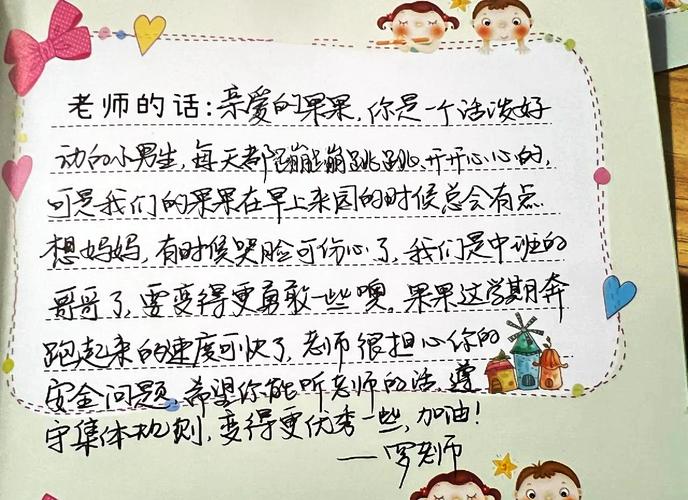 老师的话:亲爱的果果,你是一个活泼好
动的小男生,每天都蹦蹦跳跳、开开心心的,
可是我们的果果在早上来园的时候总会有点
想妈妈,有时候哭脸可伤心了,我们是中班的
哥哥了,要变得更勇敢一些噢。果果这学期奔
跑起来的速度可快了,老师很担心你的
安全问题,希望你能听老师的话,遵
守集体规则,变得更优秀一些,加油!
——罗老师